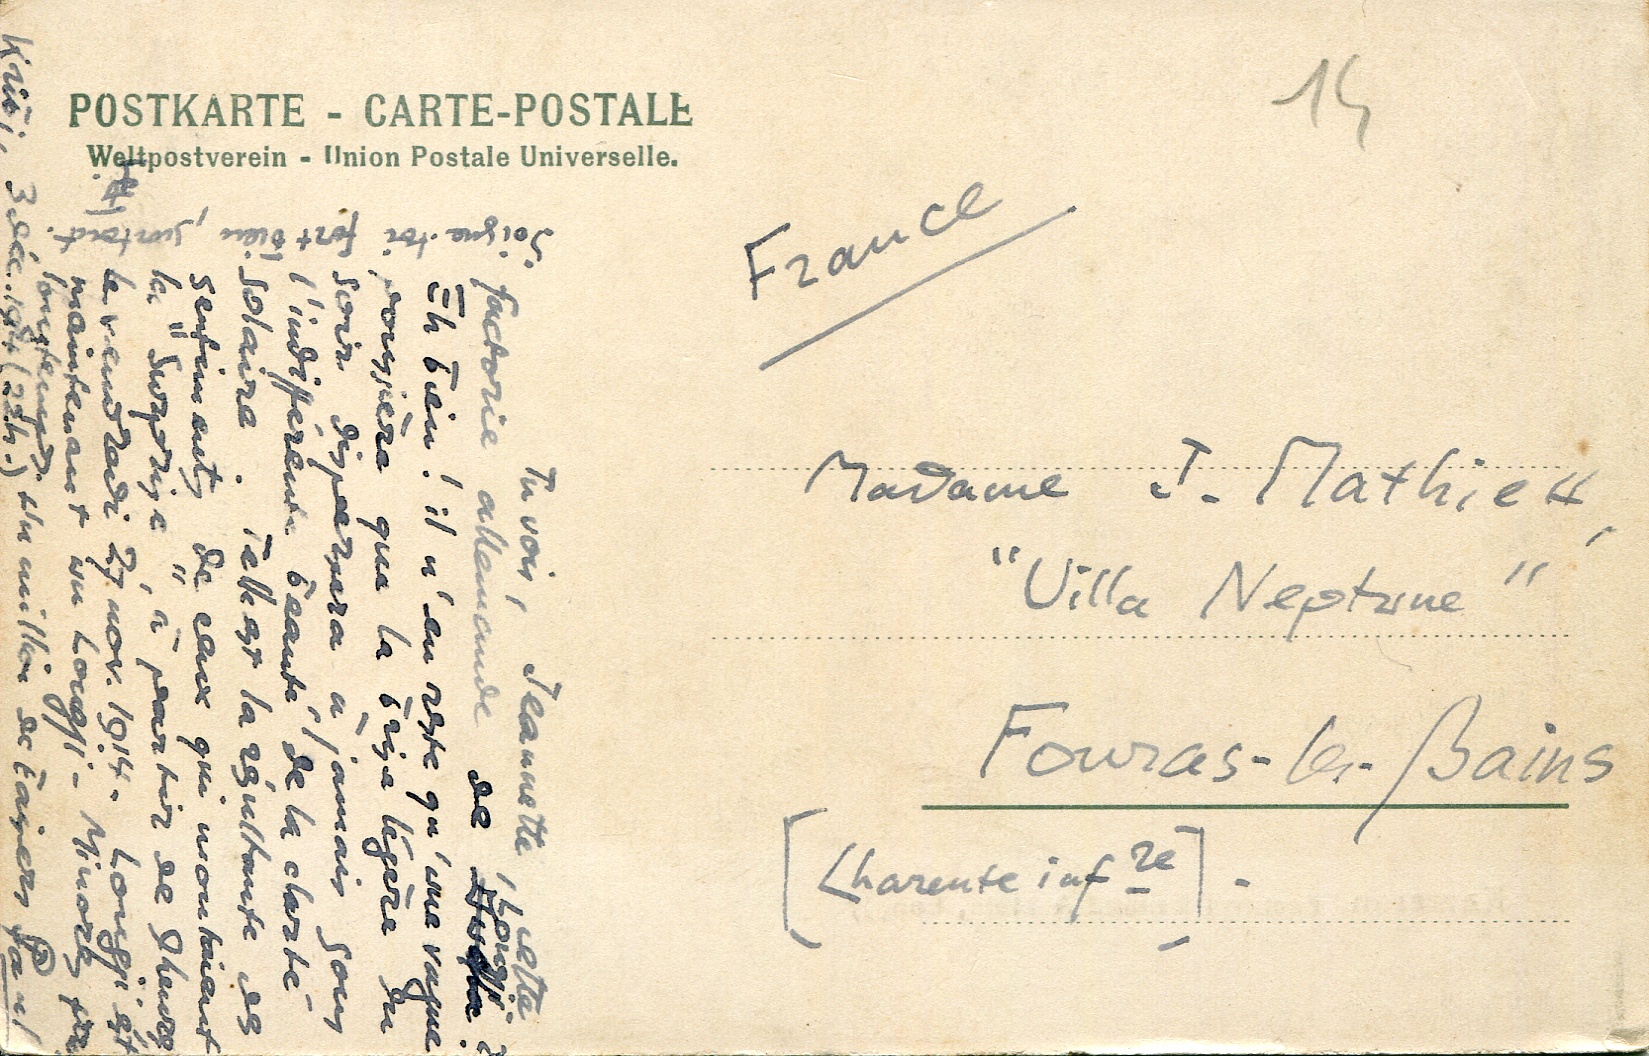 POSTKARTE - CARTE-POSTALE
Weltpostverein - Union Postale Universelle.
14
France
Madame J. Mathieu,
"Villa Neptune"
Fouras-les-Bains
[Charente infre].
Tu vois, Jeannette, cette
factorie allemande de Longji?
Eh bien! il n'en reste qu'une vague
poussière que la brise légère du
soir dispersera à jamais sous
l'indifférente beauté de la clarté
solaire. Telle est la résultante des
sentiments de ceux qui montaient
la "Surprise" à partir de 9 heures
le vendredi 27 nov. 1914. Longji est
maintenant un Longji-Minory pour
longtemps.
Kribi, 3 déc. 1914 (22h.) Un million de baisers Paul
Soigne-toi fort bien, surtout.